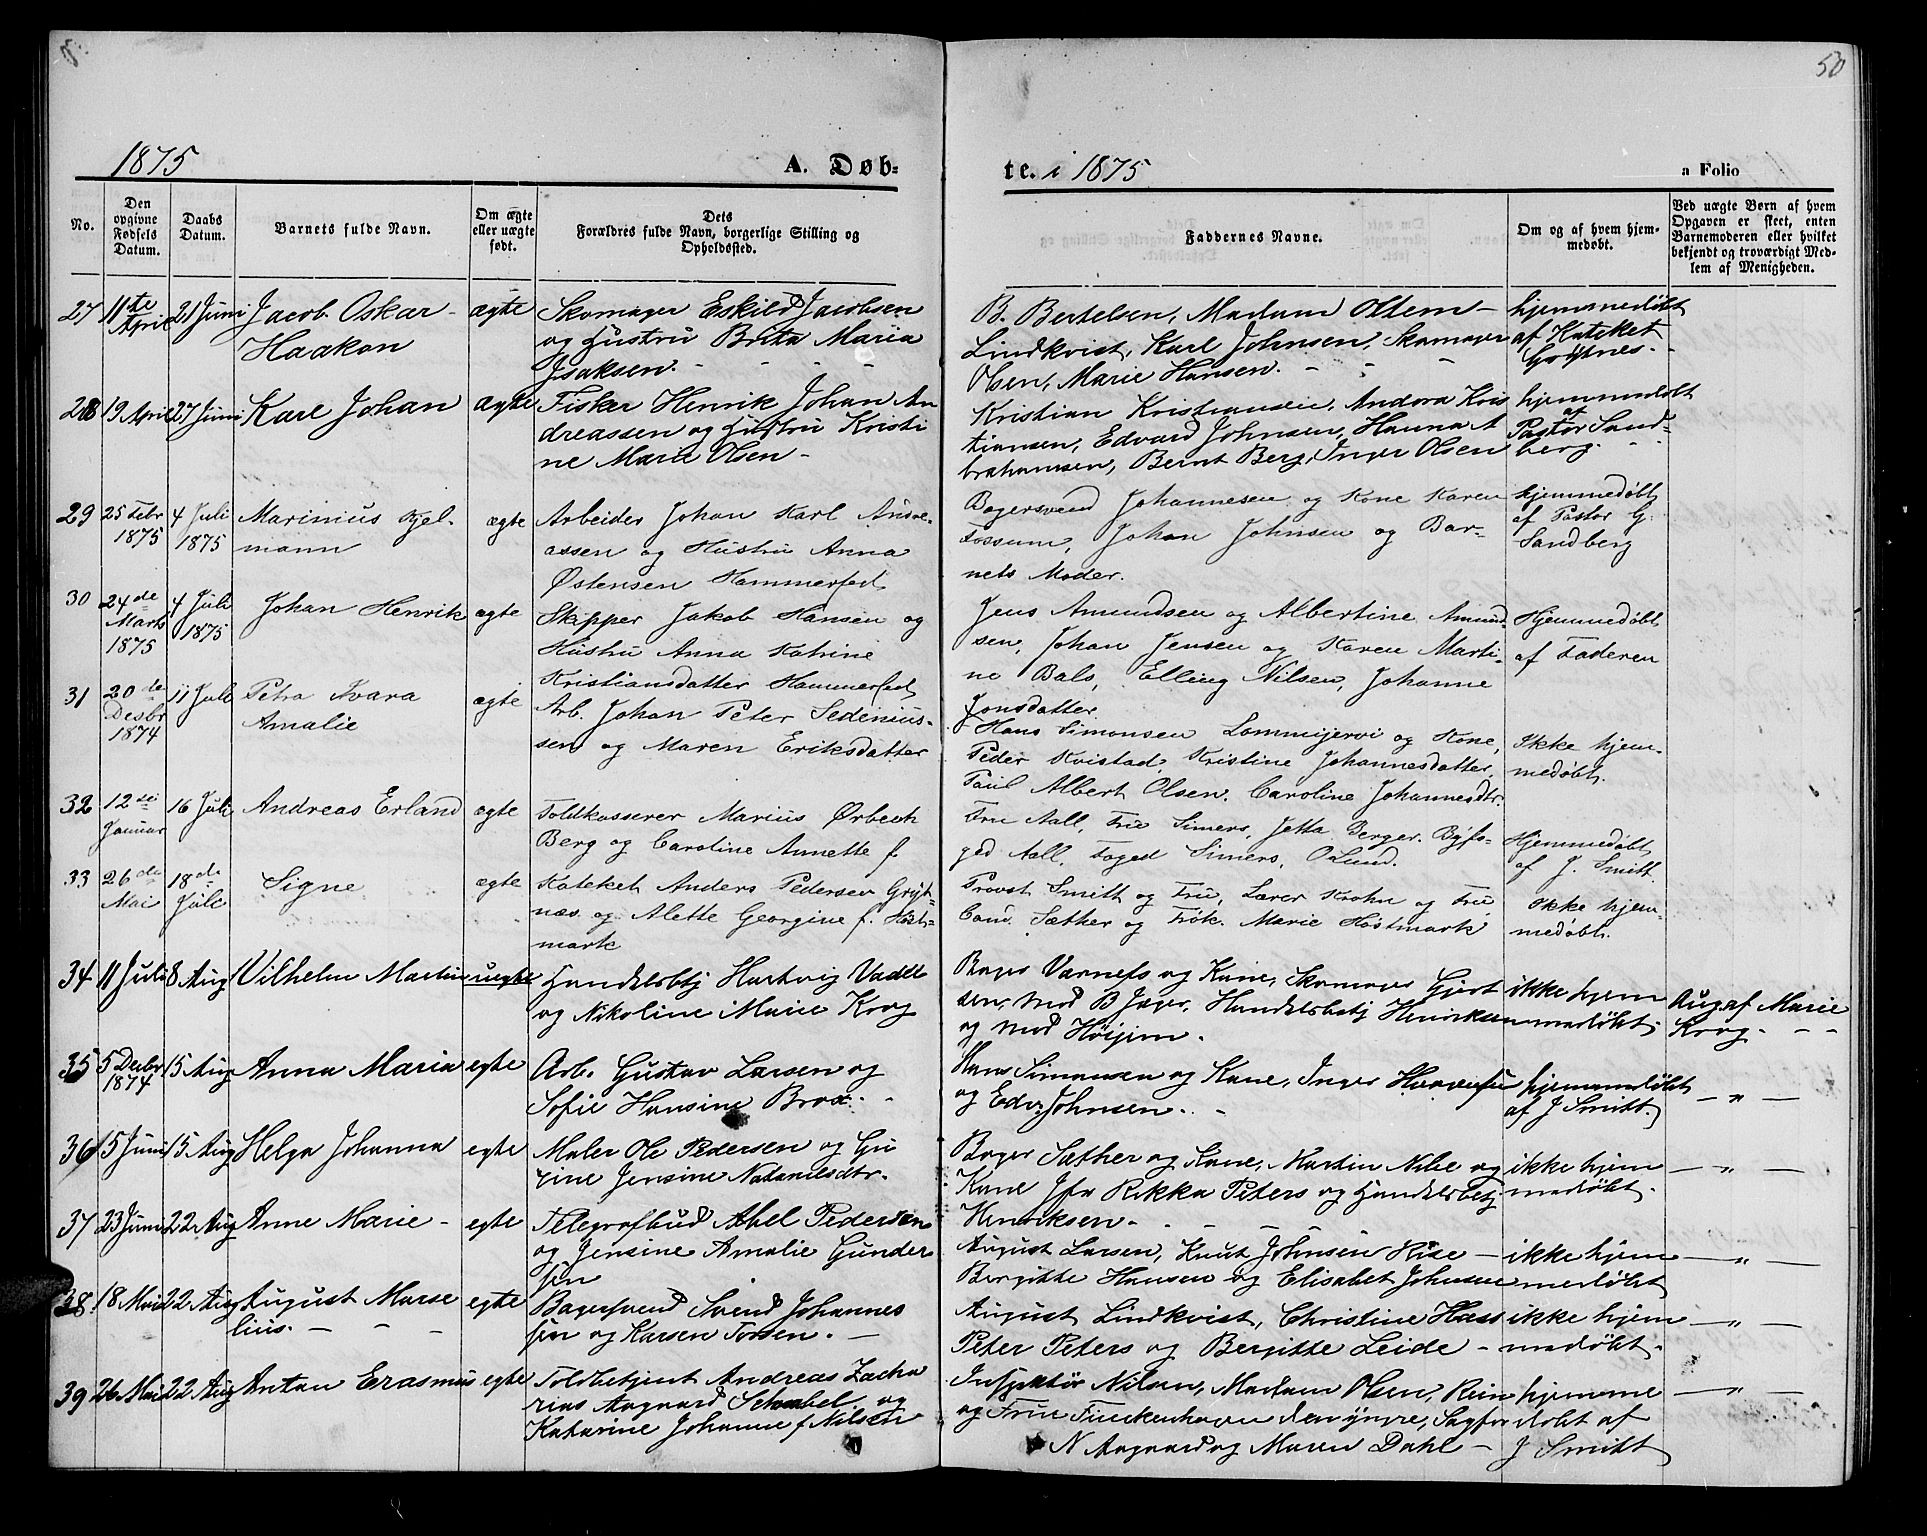 50
1875
A. Døb-
te. i 1875
a Folio
No.
Den opgivne Fødsels Datum.
Daabs Datum.
Barnets fulde Navn.
Om ægte eller uægte født.
Dets Forældres fulde Navn, borgerlige Stilling og Opholdssted.
Faddernes Navne.
Om og af hvem hjemmedøbt.
Ved uægte Børn af hvem Opgaven er skeet, enten Barnemoderen eller hvilket bekjendt og troværdigt Medlem af Menigheden.
27 11te April 21 Juni Jacob Oskar Haakon ægte
Skomager Eskild Jacobsen
og Hustru Brita Maria
Isaksen.
B. Bertelsen, Madam Oltem-
Lindkvist, Karl Johnsen, Skomager
Olsen, Marie Hansen.
hjemmedøbt
af Kateket
Grøtnes.
28 19 April 27 Juni Karl Johan ægte
Fisker Henrik Johan An
dreassen og Hustru Kristi
ne Marie Olsen -
Kristian Kristiansen, Andora Kris
tiansen, Edvard Johnsen, Hanna A
brahamsen, Bernt Berg, Inger Olsen
hjemmedøbt
af
Pastor Sand=
berg.
29 25 Febr 1875 4 Juli 1875 Marinius Kjel-
mann ægte
Arbeider Johan Karl Andre-
assen og Hustru Anna
Østensen Hammerfest
Bagersvend Johannesen og Kone Karen
Fossum, Johan Johnsen og Bar-
nets Moder.
hjemmedøbt
af Pastor G.
Sandberg
30 24de Marts 1875 4 Juli 1875 Johan Henrik ægte
Skipper Jakob Hansen og
Hustru Anna Katrine
Kristiansdatter Hammerfest
Jens Amundsen og Albertine Amund-
sen, Johan Jensen og Karen Marti-
ne Bals, Elling Nilsen, Johanne
Jonsdatter.
Hjemmedøbt
af Faderen
31 20de Desbr 1874 11 Juli Petra Ivara
Amalie ægte
Arb. Johan Peter Sedenius-
sen og Maren Eriksdatter
Hans Simonsen Lommijervi og Kone,
Peder Kvistad, Kristine Johannesdatter,
Paul Albert Olsen. Caroline Johannesdtr.
Ikke hjem-
medøbt.
32 12te Januar 16 Juli Andreas Erland ægte
Toldkasserer Marius Ørbech
Berg og Caroline Annette f.
Fru Aall, Fru Simers, Jetta Berger. Byfo-
ged Aall, Foged Simers, O Lund.
Hjemmedøbt
af J. Smitt.
33 26de Mai 18de Juli Signe ægte
Kateket Anders Pedersen Grøt-
næs og Alette Georgine f. Høst-
mark
Provst Smitt og Fru, Lærer Krohn og Fru,
Cand. Sæther og Frøk. Marie Høstmark
Ikke hjem-
medøbt.
34 11 Juli 8 Aug Vilhelm Martin uegte
Handelsbtj Hartvig Vadel
og Nikoline Marie Krog
Bager Varnefs og Kone, Skomager Gjert
sen, Mad B Jager, Handelsbetj Henriksen
og Mad Høijem.
ikke hjem
medøbt.
Aug af Marie
Krog.
35 5 Desbr 1874 15 Aug Anna Maria egte
Arb. Gustav Larsen og
Sofie Hansine Brox.
Hans Simonsen og Kone, Inger
og Edv. Johnsen.
hjemmedøbt
af J Smitt.
— " —
36 5 Juni 15 Aug Helga Johanna egte
Maler Ole Pedersen og Gu
rine Jensine Natanilsdtr.
Bager Sæther og Kone, Martin Nibe og
Kone Jfr Rikka Peters og Handelsbetj
Henriksen-
ikke hjem
medøbt.
— " —
37 23 Juni 22 Aug Anne Marie - egte
Telegrafbud Abel Pedersen
og Jensine Amalie Gunder
sen
August Larsen, Knut Johnsen Hise -
Bergitte Hansen og Elisabet Johnsen
ikke hjem
medøbt
— " —
38. 18 Mai 22 Aug August Marse
lius. egte
Bagersvend Svend Johannes
sen og Karsen Torsen. -
August Lindkvist, Christine Hass
Peter Peters og Bergitte Leide -
ikke hjem
medøbt.
— " —
39 26 Mai 22 Aug Anton Erasmus egte
Toldbetjent Andreas Zacha
rias Aagaard Schnabel og
Katarine Johanne f. Nilsen
Inspektør Nilsen, Madam Olsen, Rein
og Frue Finckenhagen den yngre, Sagfør
N Aagaard og Maren Dahl -
hjemme
døbt af
J Smitt
— " —